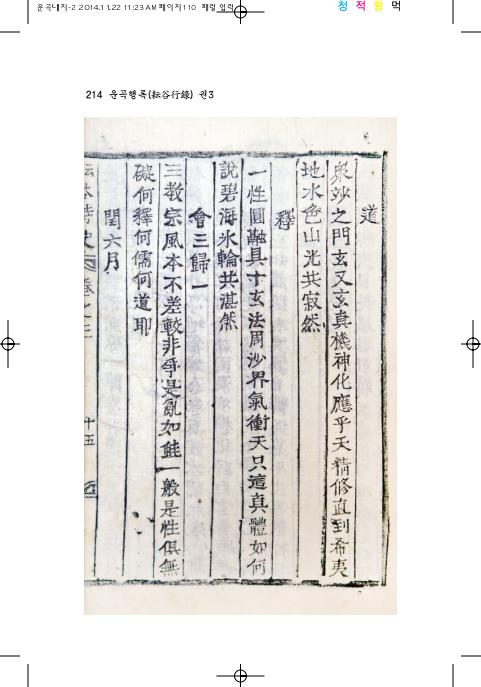 운곡내지-2 2014.11.22 11:23 AM 페이지110 패럴 입력
청 적 황 먹
214 운곡행록(耘谷行錄) 권3
道
衆妙之門玄又玄真機神化應乎天精修直到希夷
地水色山光共寂然
釋
一性圓融具十玄法周沙界氣衝天只這真體如何
說碧海氷輪共湛然
會三歸一
三敎宗風本不差較非爭是亂如蛙一般是性俱無
礙何釋何儒何道耶
閏六月
耘谷詩史 卷之三 十五